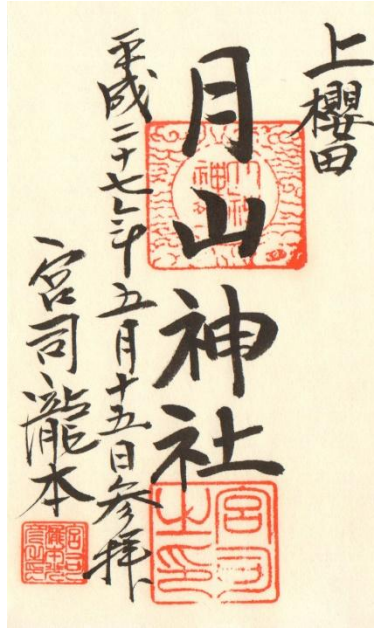 上櫻田
月山神社
平成二十七年五月十五日参拝
宮司瀧本
宮司之印